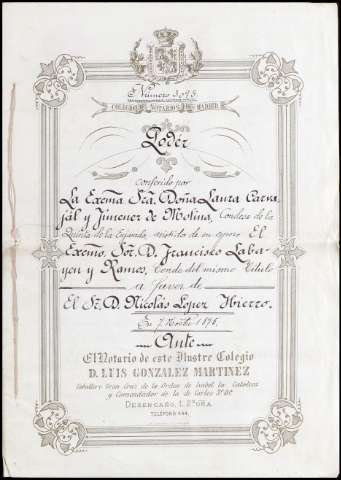 Número 3095.
COLEGIO DE NOTARIOS DE MADRID
Poder
conferido por
La Excma. Sra. Doña Laura Carva
jal y Jimenez de Molina, Condesa de la
Quinta de la Enjarada, asistida de su esposo El
Excmo. Sor. D. Francisco Laba
yen y Ramos, Conde del mismo Título
a favor de
El Sr. D. Nicolás López Hierro.
En 7 1896.
Ante
El Notario de este Ilustre Colegio
D. LUIS GONZALEZ MARTINEZ
Caballero Gran Cruz de la Orden de Isabel la Católica
y Comendador de la de Carlos IIIº &ª
DESENGAÑO, 1, 2º DRA
TELÉFONO 444.